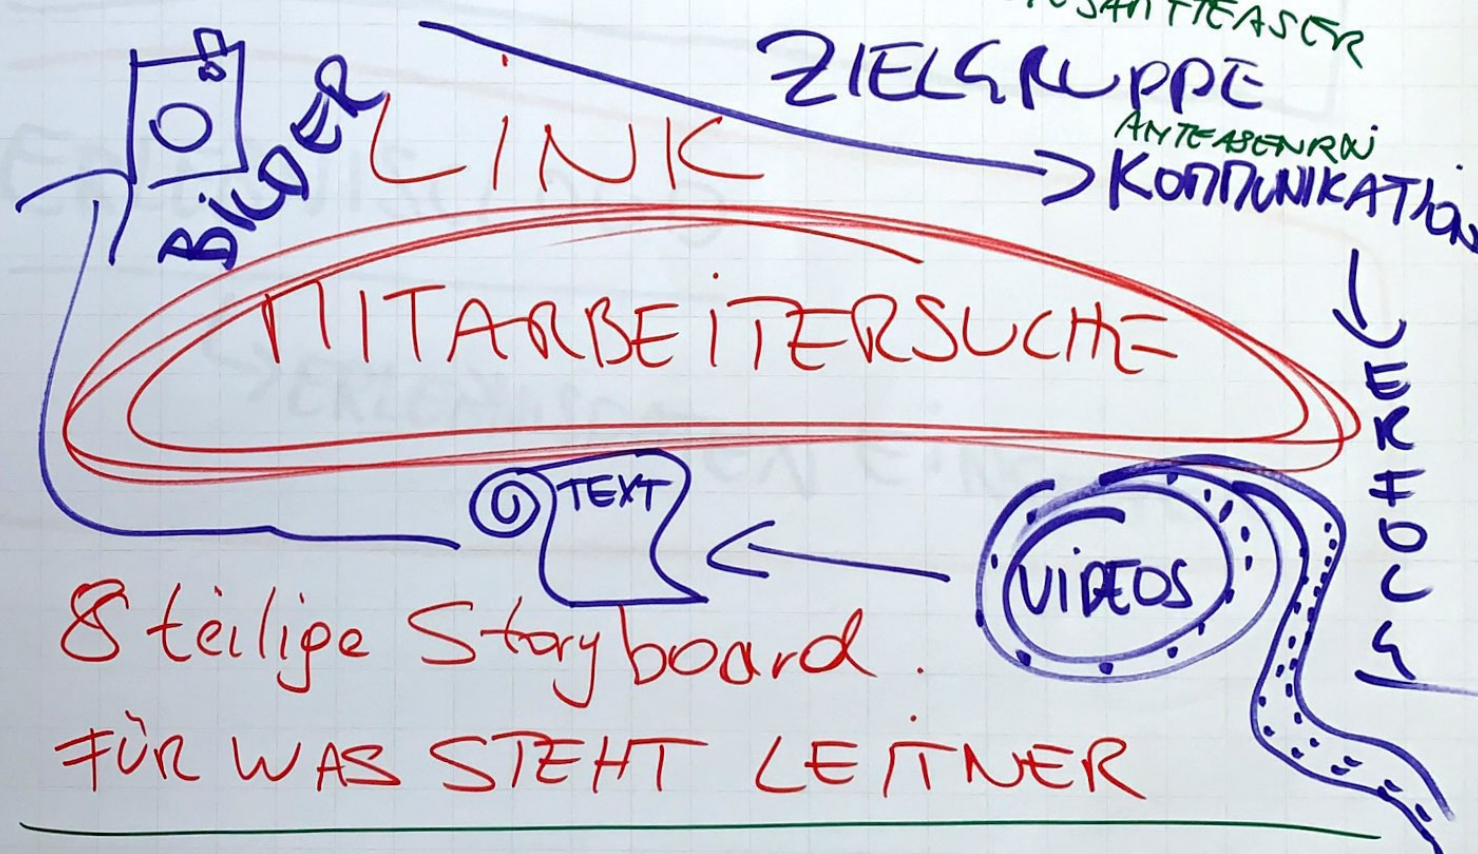 ZIELGRUPPE
BILDER
LINK
KOMMUNIKATION
MITARBEITERSUCHE
ERFOLG
TEXT
VIDEOS
8 teilige Storyboard.
FÜR WAS STEHT LEITNER